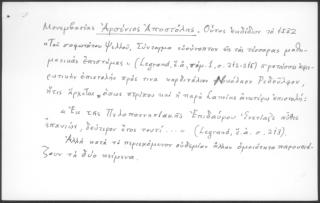 Μονεμβασίας Ἀρσένιος Ἀποστόλης. Οὗτος ἐκδίδων τὸ 1532
«Τοῦ σοφωτάτου Ψελλοῦ, Σύνταγμα εὐσύνοπτον εἰς τὰς τέσσαρας μαθη-
ματικὰς ἐπιστήμας» (Legrand, ἔ.ἀ., τόμ. 1, σ. 212-213) προτάσσει
ἐπιστολὴν πρός τινα καρδινάλιον Νικόλαον Ῥεδοῦλφον,
ἥτις ἄρχεται ὅπως περίπου καὶ ἡ παρὰ ἀνωτέρω ἐπιστολή:
«Ἐκ τῆς Πελοποννησιακῆς Ἐπιδαύρου Ἐνετίαζε αὖθις
ἐπανιών, δεύτερον ἔτος τουτί....» (Legrand, ἔ.ἀ. σ. 213).
Ἀλλὰ κατὰ τὸ περιεχόμενον οὐδεμίαν ἄλλην ὁμοιότητα παρουσιά-
ζουν τὰ δύο κείμενα.